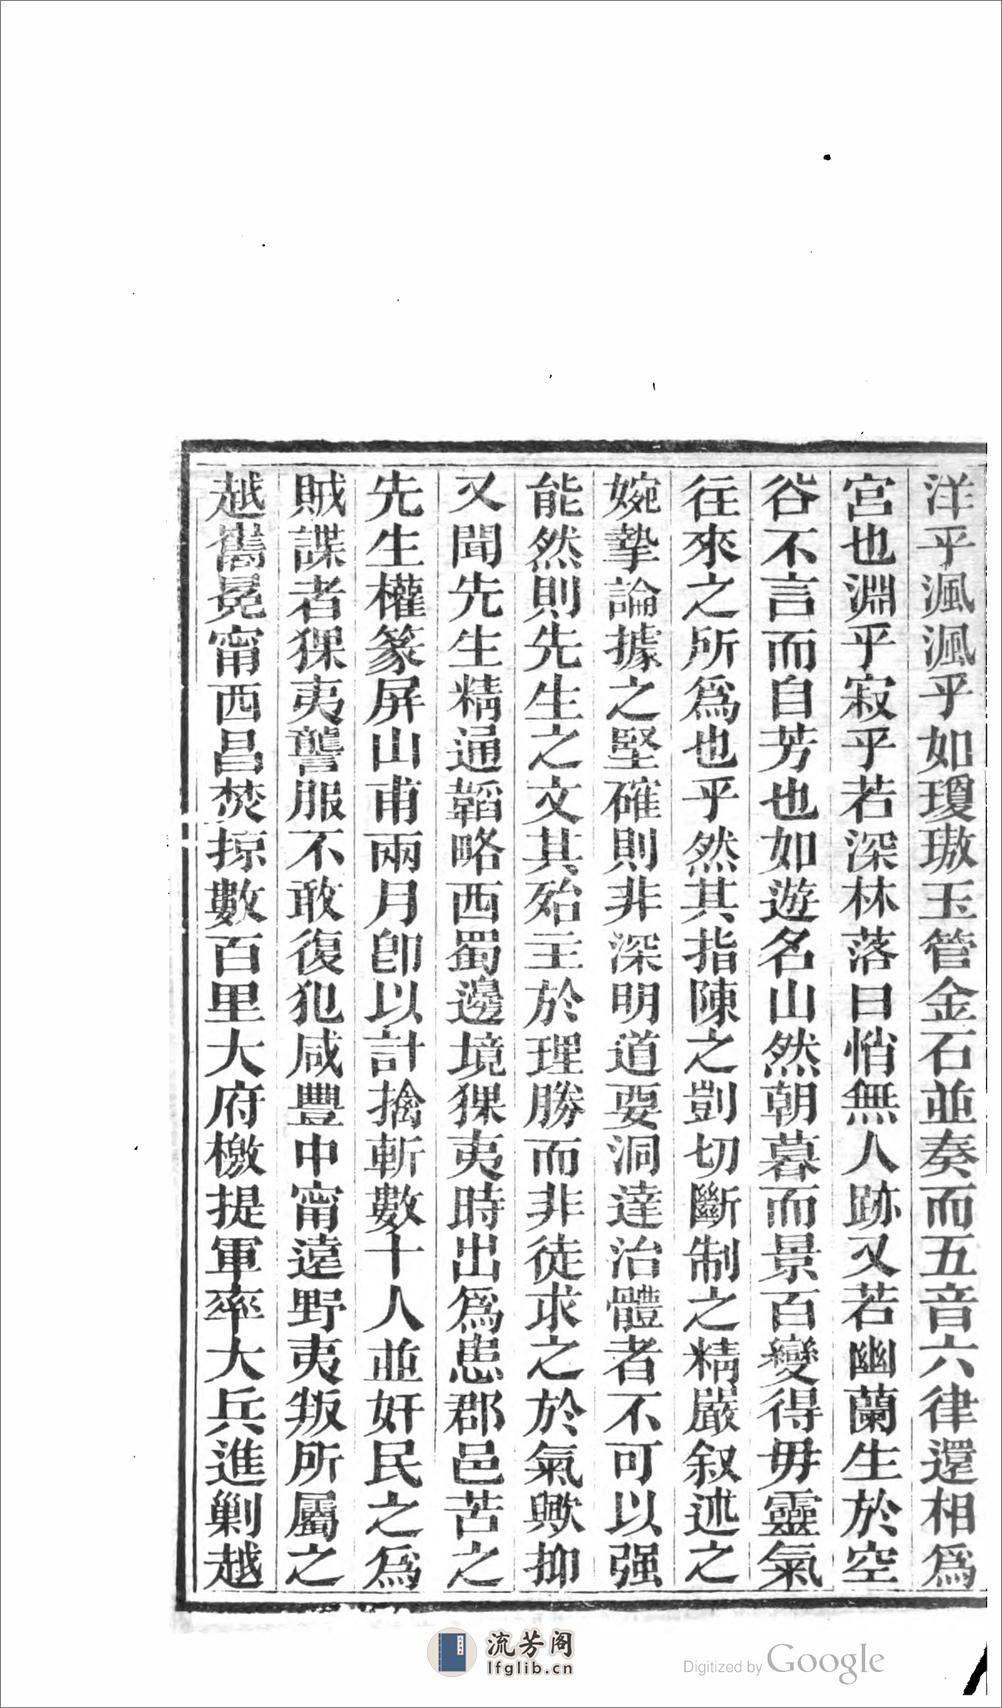 洋乎渢渢乎如瓊璈玉管金石並奏而五音六律還相爲
宮也淵乎寂乎若深林落日悄無人跡又若幽蘭生於空
谷不言而自芳也如遊名山然朝暮而景百變得毋靈氣
往來之所爲也乎然其指陳之剴切斷制之精嚴叙述之
婉摯論據之堅確則非深明道要洞達治體者不可以强
能然則先生之文其殆主於理勝而非徒求之於氣歟抑
又聞先生精通韜略西蜀邊境猓夷時出爲患郡邑苦之
先生權篆屏山甫兩月卽以計擒斬數十人並奸民之爲
賊諜者猓夷讋服不敢復犯咸豐中甯遠野夷叛所屬之
越嶲冕甯西昌焚掠數百里大府檄提軍率大兵進剿越
流芳阁
lfglib.cn
Digitized by Google